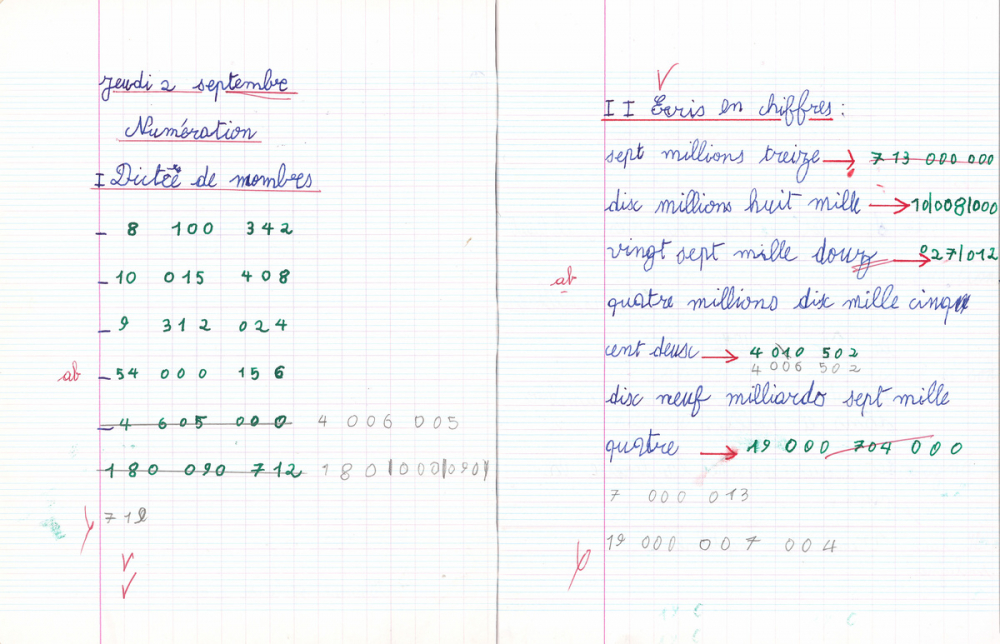 Jeudi 2 septembre
Numération
I Dictée de mombres
- 8 100 342
- 10 015 408
- 9 312 024
ab - 54 000 156
- 4 605 000 4 006 005
180 090 712 180|000|090|
712
II Écris en chiffres :
sept millions treize → 713 000 000
disc millions huit mille → 10|008|000
vingt sept mille douz → 827/012
ab
quatre millions dix mille cinq
cent deusc → 4 010 502
4 006 502
disc neuf milliards sept mille
quatre → 19 000 704 000
7 000 013
19 000 007 004